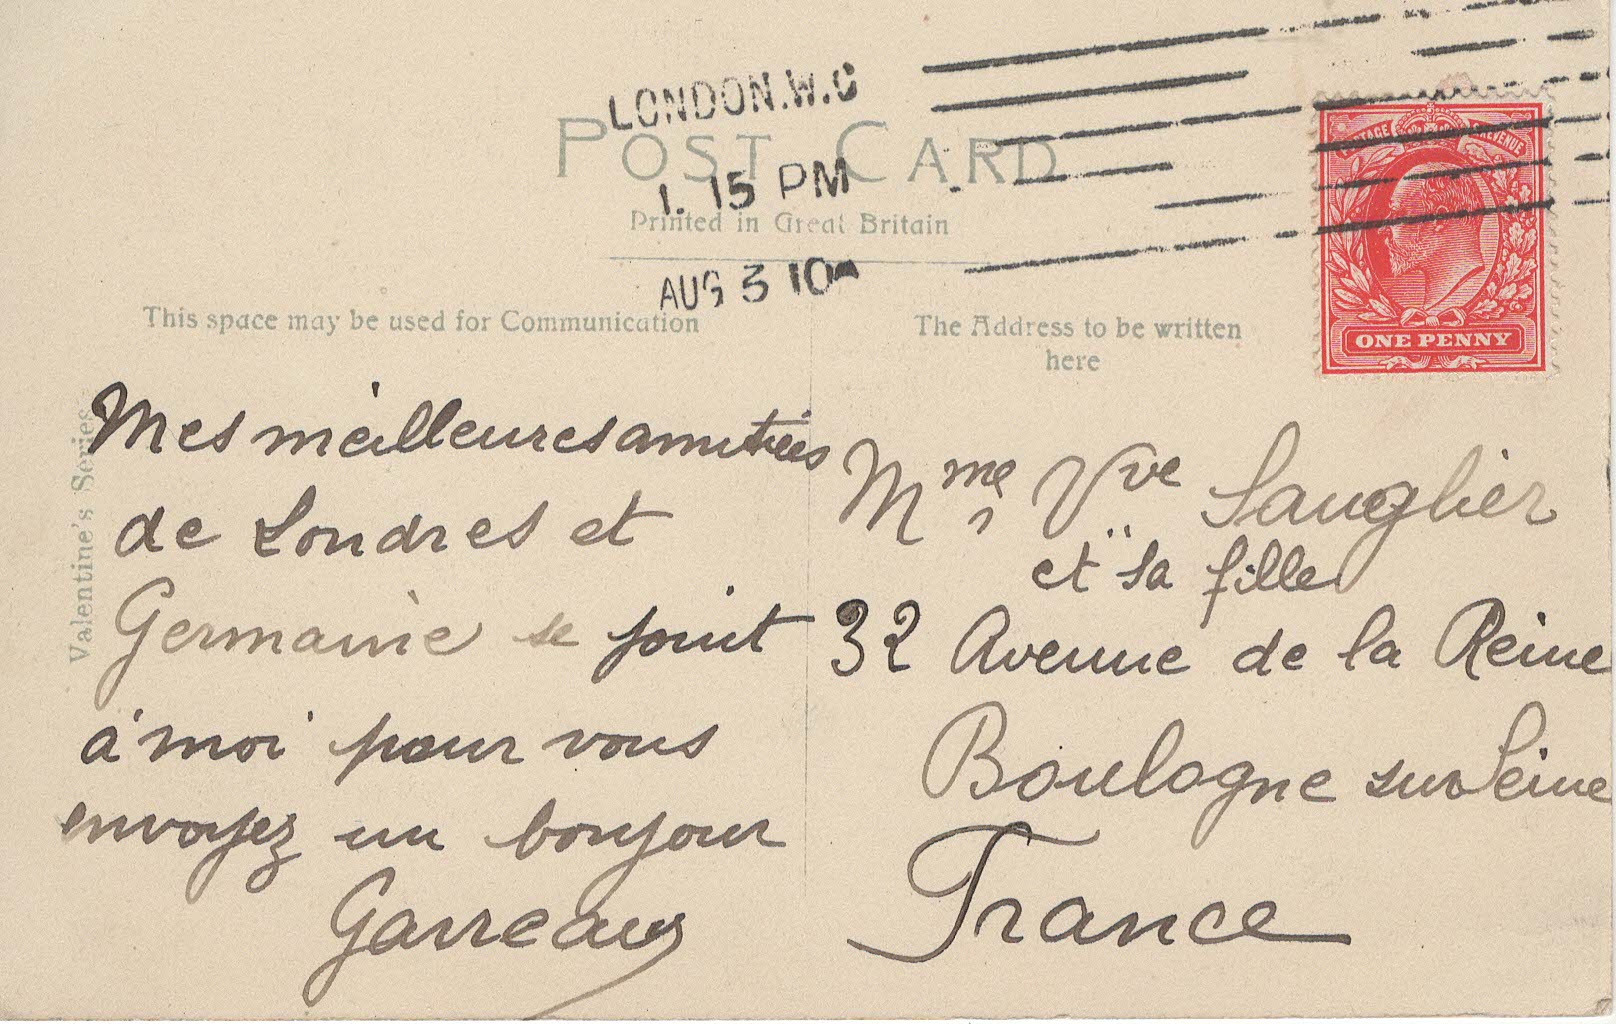 LONDON.W.C
1. 15 PM
AUG 3 10
POST CARD
Printed in Great Britain
POSTAGE REVENUE
ONE PENNY
This space may be used for Communication
The Address to be written
here
Valentine's Series
Mes meilleures amitiés
de Londres et
Germaine se joint
à moi pour vous
envoyez un bonjour
Garreau
Mme Vve Sauglier
et sa fille
32 Avenue de la Reine
Boulogne sur Seine
France